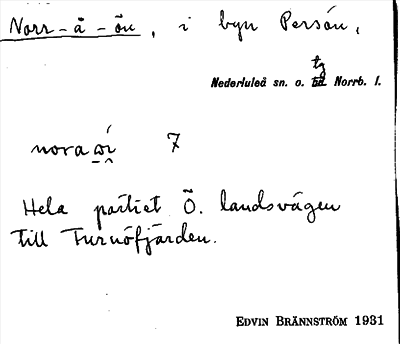 Norr-å-ön, i byn Persön,
Nederluleå sn. o. tg Norrb. l.
nora 7
Hela partiet Ö. landsvägen
till Furuöfjärden.
EDVIN BRÄNNSTRÖM 1931